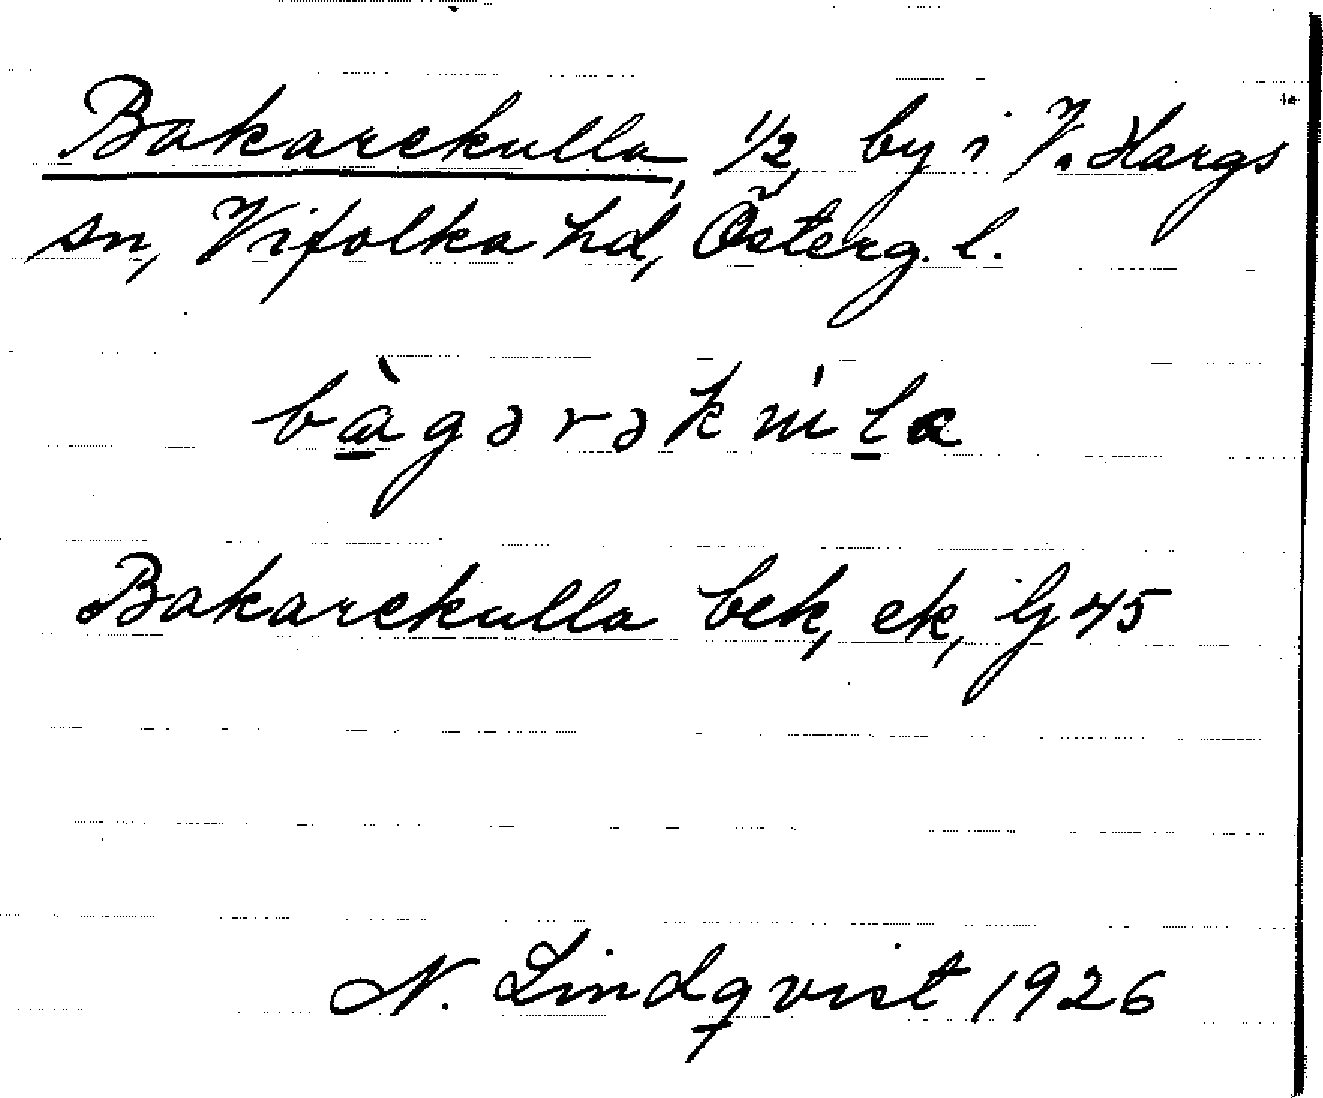 Bakarekulla, 1/2, by i V. Hargs
sn, Vifolka hd, Österg. l.
bàgərəkúla
Bakarekulla bek, ek, Gj 45
N. Lindqvist 1926